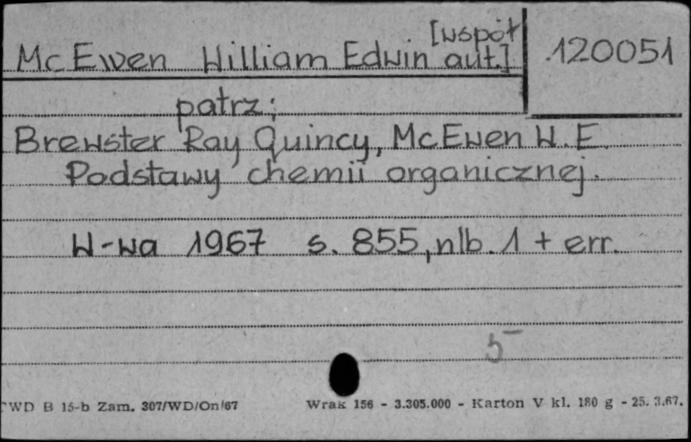 Mc Ewen William Edwin [współaut.] 120051
patrz:
Brewster Ray Quincy, McEwen W. E.
Podstawy chemii organicznej.
W-wa 1967 s. 855, nlb. 1 + err.
5
WD B 15-b Zam. 307/WD/On/67 Wrak 156 - 3.305.000 - Karton V kl. 180 g - 25. 3.67.